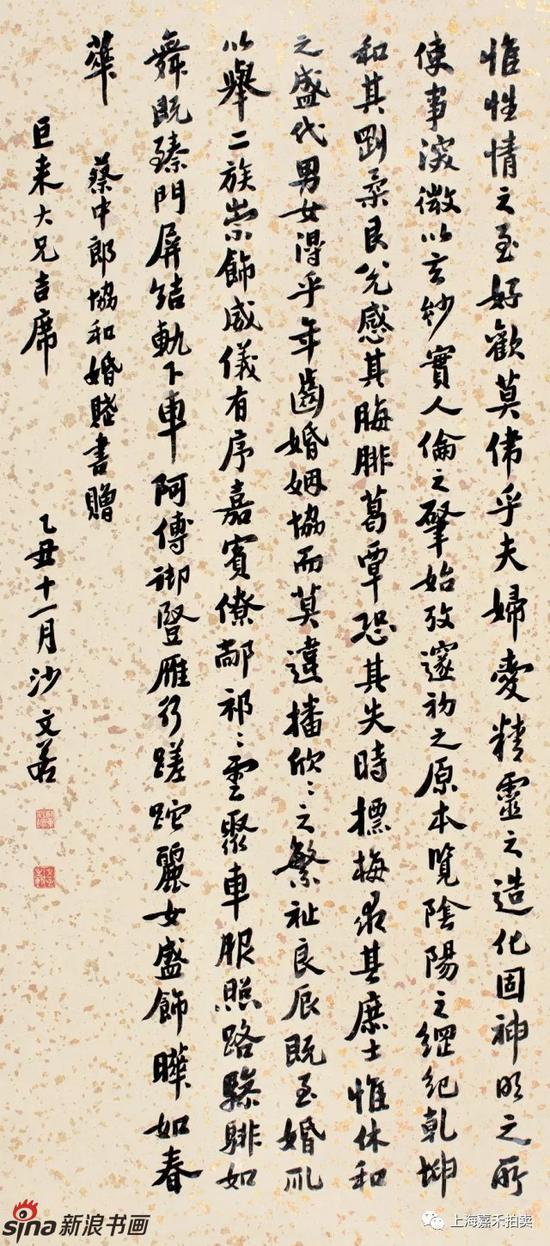 惟性情之至好歡莫偉乎夫婦愛精靈之造化固神明之所
使事深微以玄妙實人倫之肇始攷邃初之原本覽陰陽之綱紀乾坤
和其剛柔艮兌感其晦腓葛覃恐其失時摽梅求其庶士惟休和
之盛代男女得乎年齒婚姻協而莫違播欣〻之繁祉良辰既至婚礼
以舉二族崇飾威儀有序嘉賓僚郙祁〻雲聚車服照路驂騑如
舞既臻門屏結軌下車阿傅御豎雁行蹉跎麗女盛飾曄如春
華
蔡中郎協和婚賦書贈
巨来大兄吉席
乙丑十一月沙文若
sina新浪书画
上海嘉禾拍卖